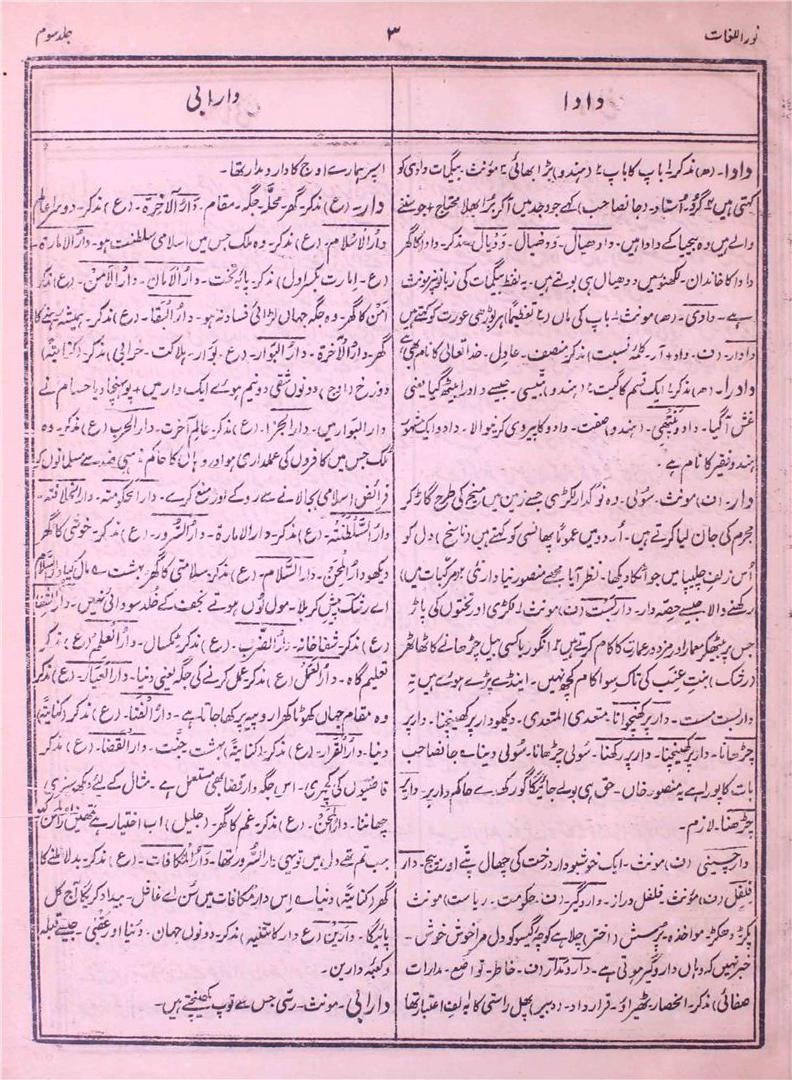 نور اللغات
۳
جلد سوم
دادا
دارابی
دادا۔ (ھ) مذکر۱ باپ کا باپ ۲ (ہندو) بڑا بھائی ۳ مؤنث۔ بیگمات دادی کو
کہتی ہیں ۴ گرو۔ اُستاد۔ (جانصاحب) کہے جو جد میں آکر بُرا بھلا محتاج + جو سننے
والے ہیں وہ بیحیا کے دادا ہیں۔ دادھیال۔ دَدھیال۔ دَدْیال۔ مذکر۔ دادا کا گھر
دادا کا خاندان۔ لکھنؤ میں ددھیال ہی بولتے ہیں۔ یہ لفظ بیگمات کی زبانوں پر مؤنث
ہے۔ دادی۔ (ھ) مونث۔ باپ کی ماں (۲) تعظیماً ہر بوڑھی عورت کو کہتے ہیں
دادار۔ (ف۔ داد + آر۔ کلمۂ نسبت) مذکر۔ منصف۔ عادل۔ خدا تعالیٰ کا نام بھی ہے
دادرا۔ (ھ) مذکر۱ ایک قسم کا گیت ۲ (ہندو) بتیسی۔ جیسے دادرا بیٹھ گیا یعنی
غش آگیا۔ دادو پنتھی۔ (ہندو) صفت۔ دادو کا پیروی کرنیوالا۔ دادو ایک مشہور
ہندو فقیر کا نام ہے۔
دار۔ (ف) مونث۔ سُولی۔ وہ نوکدار لکڑی جسے زمین میں میخ کی طرح گاڑ کر
مجرم کی جان لیا کرتے ہیں۔ اُردو میں عموماً پھانسی کو کہتے ہیں (ناسخ) دل کو
اُس زلفِ چلیپا میں جو اٹکا دیکھا۔ نظر آیا مجھے منصور نیا دار نئی ۲ (مرکبات میں)
رکھنے والا۔ جیسے حصہ دار۔ داربست (ف) مونث۔ لکڑی اور تختوں کی پاڑ
جس پر بیٹھکر معمار اور مزدور عمارت کا کام کرتے ہیں ۲ انگور یا کسی بیل چڑھانے کا ٹھاٹر
(رشک) بنتِ عنب کی تاک سوا کام کچھ نہیں۔ اینڈے پڑے ہوئے ہیں تہِ
داربست مست۔ دار پر کھنچوانا۔ متعدی المتعدی۔ دیکھو دار پر کھینچنا۔ دار پر
چڑھانا۔ دار پر کھینچنا۔ دار پر رکھنا۔ سُولی چڑھانا۔ سُولی دینا جانصاحب
بات کا پورا ہے یہ منصور خاں۔ حق ہی بولے جائیگا گو رکھدے حاکم دار پر۔ دار پر
چڑھنا۔ لازم۔
دارچینی (ف) مونث۔ ایک خوشبودار درخت کی چھال پتّے اور بیج۔ دار
فِلفِل (ف) مؤنث۔ فلفل دراز۔ دار و گیر۔ (ف۔ حکومت۔ ریاست) مونث
پکڑ دھکڑ۔ مواخذہ۔ پُرسش (اختر) چلا ہے کوچۂ گیسو کو دل مرا خوش خوش۔
خبر نہیں کہ وہاں دار و گیر ہوتی ہے۔ دار و مدار (ف۔ خاطر۔ تواضع۔ مدارات
صفائی) مذکر۔ انحصار۔ ٹھیراؤ۔ قرارداد۔ (دبیر) پھل راستی کا یہ الف اعتبار تھا
اسپر ہمارے اوج کا دار و مدار تھا۔
دار۔ (ع) مذکر۔ گھر۔ محلّہ۔ جگہ۔ مقام۔ دَارُ الْآخِرَۃ۔ (ع) مذکر۔ دوسرا عالم
دارُ الاسلام۔ (ع) مذکر۔ وہ ملک جس میں اسلامی سلطنت ہو۔ دارُ الامارۃ۔
(ع۔ اِمارت بکسر اول) مذکر۔ پائے تخت۔ دارُ الأمان۔ دارُ الأمْن۔ (ع) مذکر
اَمْن کا گھر۔ وہ جگہ جہاں لڑائی فساد نہ ہو۔ دارُ البَقا۔ (ع) مذکر۔ ہمیشہ رہنے کا
گھر۔ دارُ الآخرۃ۔ دارُ البَوار۔ (ع۔ بَوار۔ ہلاکت۔ خرابی) مذکر۔ (کنایۃً)
دوزخ (اوج) دونوں شقی دو نیم ہوئے ایک وار میں + پہنچا دیا حسام نے
دار البوار میں۔ دار الجزا۔ (ع) مذکر۔ عالمِ آخرت۔ دار الحرب (ع) مذکر۔ وہ
ملک جس میں کافروں کی عملداری ہو اور وہاں کا حاکم مسلمانوں کو
فرائضِ اسلامی بجا لانے سے روکے اور منع کرے۔ دار الحکومتہ۔ دار الخلافتہ۔
دارُ السَّلْطَنَتہ۔ (ع) مذکر۔ دار الامارۃ۔ دارُ السُّرور۔ (ع) مذکر۔ خوشی کا گھر
دیکھو دارُ المِحَن۔ دارُ السَّلام۔ (ع) مذکر۔ سلامتی کا گھر۔ بہشت دار السلام
اے رشک پیشِ کربلا۔ مول لُوں ہوتے نجف کے خُلد سودائی نہیں۔ دار الشفا
(ع) مذکر۔ شفاخانہ۔ دارُ الضَّرب۔ (ع) مذکر۔ ٹکسال۔ دارُ العِلم (ع) مذکر
تعلیم گاہ۔ دارُ العمل (ع) مذکر۔ عمل کرنے کی جگہ یعنی دنیا۔ دارُ العِیَار۔ (ع) مذکر
وہ مقام جہاں کھوٹا کھرا روپیہ پرکھا جاتا ہے۔ دارُ الفنا۔ (ع) مذکر (کنایۃً)
دنیا۔ دارُ القَرار۔ (ع) مذکر۔ (کنایۃً) بہشت۔ جنّت۔ دارُ القضا۔ (ع) مذکر
قاضیوں کی کچہری۔ اس جگہ دارِ قضا بھی مستعمل ہے۔ مثال کے لئے دیکھو سیری
چھاننا۔ دارُ المِحَن۔ (ع) مذکر۔ غم کا گھر۔ (جلیل) اب اختیار ہے تمھیں
جب تم تھے دل میں تو یہی دار السرور تھا۔ دَارُ المُکَافات۔ (ع) مذکر۔ بدلا ملنے کا
گھر (کنایۃً) دنیا۔ اِس دارِ مکافات میں سُن اے غافل۔ بیداد کریگا آج کل
پائیگا۔ دارَین (ع دار کا تثنیہ) مذکر۔ دونوں جہان۔ دُنیا اور عُقبٰی۔ جیسے قبلہ
وکعبۂ دارین۔
دارابی۔ مونث۔ رسّی جس سے توپ کھینچتے ہیں۔